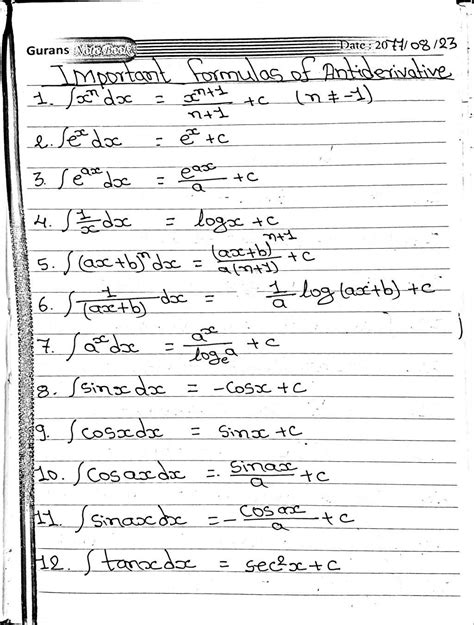 Gurans Note Book Date : 2077/08/23
Important formulas of Antiderivative
1. ∫xⁿdx = xⁿ⁺¹/n+1 + c (n ≠ -1)
2. ∫eˣdx = eˣ + c
3. ∫eᵃˣdx = eᵃˣ/a + c
4. ∫1/x dx = logx + c
5. ∫(ax+b)ⁿdx = (ax+b)ⁿ⁺¹/a(n+1) + c
6. ∫1/(ax+b) dx = 1/a log(ax+b) + c
7. ∫aˣdx = aˣ/logₑa + c
8. ∫sinxdx = -cosx + c
9. ∫cosxdx = sinx + c
10. ∫cosaxdx = sinax/a + c
11. ∫sinaxdx = -cosax/a + c
12. ∫tanxdx = sec²x + c